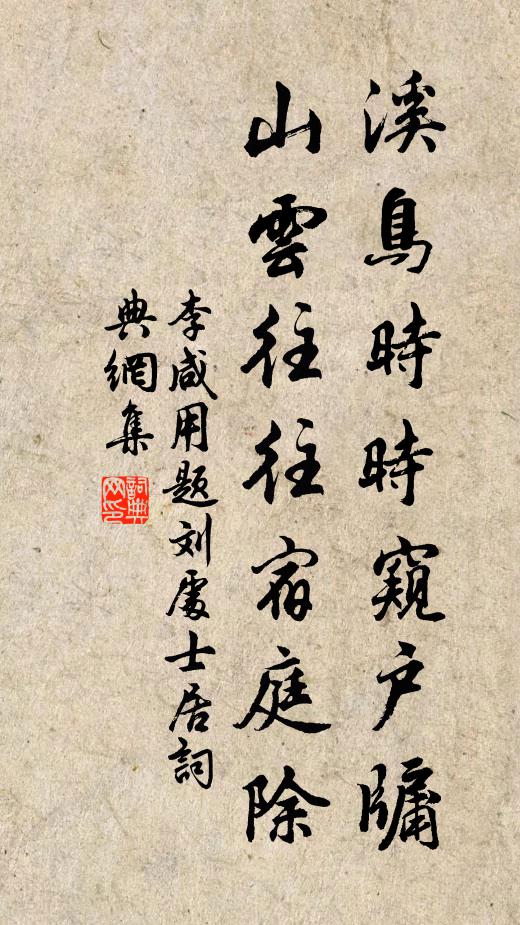 溪鳥時時窺戶牖
山雲往往宿庭除
李咸用題刘處士居詞
典網集
詞典網印